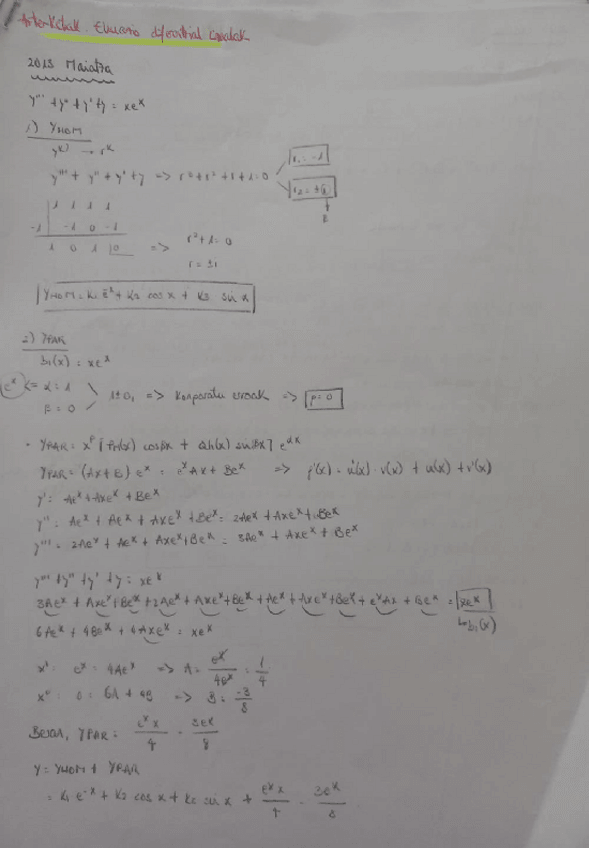 Ariketak. Ekuazio diferentzial linealak
2013 Maiatza
y''' + y'' + y' + y = xe^x
1) YHOM
y^k) → r^k
y''' + y'' + y' + y => r³ + r² + r + 1 = 0
r1 = -1
r2 = ±i
1 1 1 1
-1 | -1 0 -1
1 0 1 |0 => r² + 1 = 0
r = ±i
YHOM = K1 e^-x + K2 cos x + K3 sin x
2) YPAR
b1(x) = xe^x
e^x <= α = 1
β = 0
1 ± 0i => Konparatu erroak => p = 0
· YPAR = x^p [Pn(x) cosβx + Qn(x) sinβx] e^αx
YPAR = (Ax + B) e^x = e^x Ax + Be^x => f'(x) = u'(x) · v(x) + u(x) + v'(x)
y' = Ae^x + Axe^x + Be^x
y'' = Ae^x + Ae^x + Axe^x + Be^x = 2Ae^x + Axe^x + Be^x
y''' = 2Ae^x + Ae^x + Axe^x + Be^x = 3Ae^x + Axe^x + Be^x
y''' + y'' + y' + y = xe^x
3Ae^x + Axe^x + Be^x + 2Ae^x + Axe^x + Be^x + Ae^x + Axe^x + Be^x + e^x Ax + Be^x = xe^x
b1(x)
6Ae^x + 4Be^x + 4Axe^x = xe^x
x¹ : e^x = 4Ae^x => A = e^x/4e^x = 1/4
x⁰ : 0 = 6A + 4B => B = -3/8
Beraz, YPAR = e^x x/4 - 3e^x/8
Y = YHOM + YPAR
= K1 e^-x + K2 cos x + K3 sin x + e^x x/4 - 3e^x/8